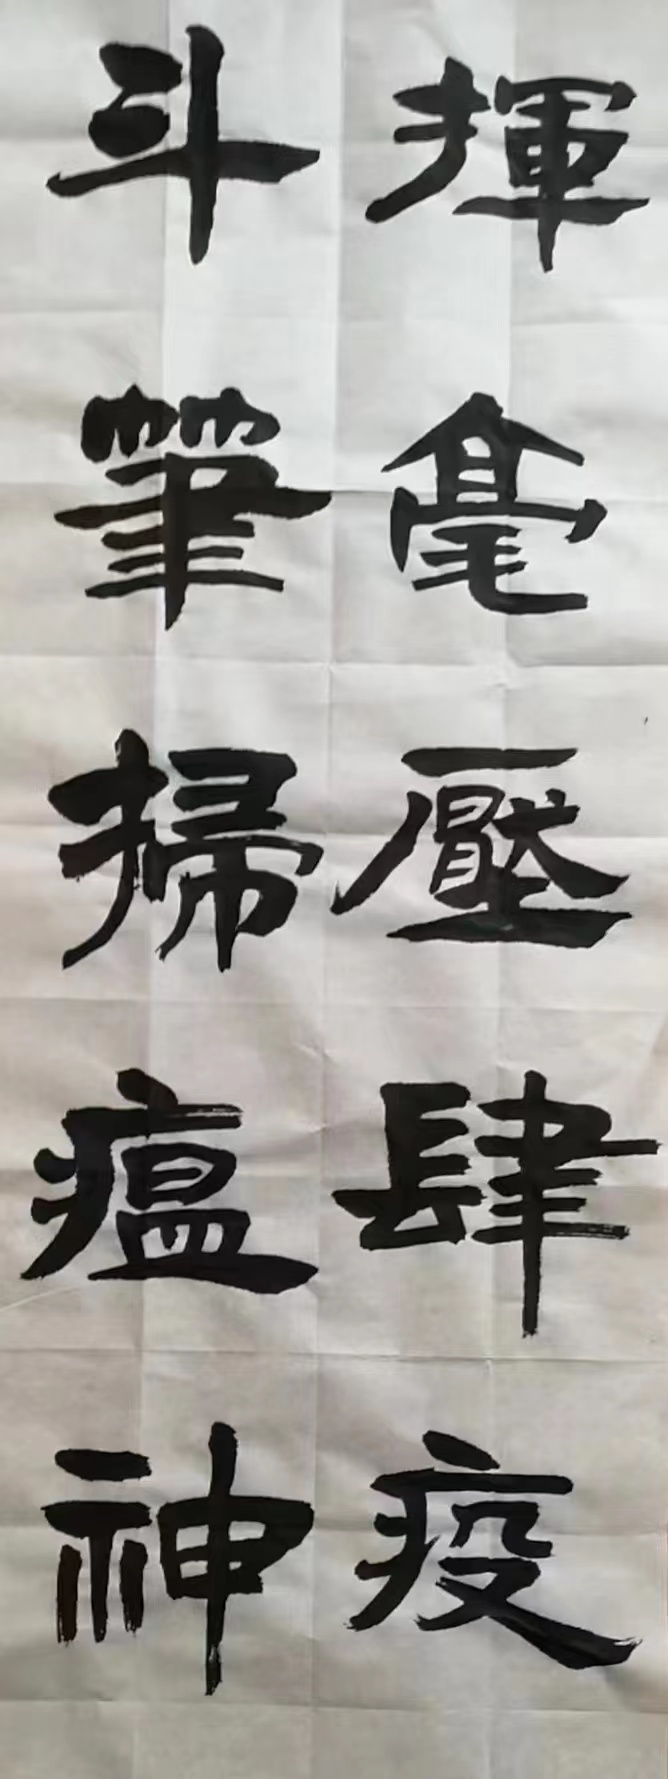 揮毫壓肆疫
斗筆掃瘟神